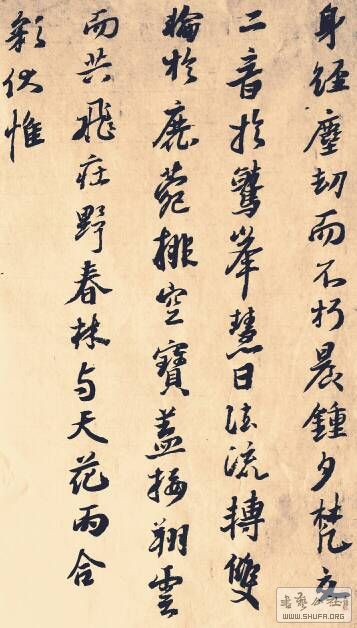 身經塵劫而不朽晨鍾夕梵交
二音於鷲峯慧日法流轉雙
輪於鹿菀排空寶蓋接翔雲
而共飛莊野春林与天花而合
彩伏惟
书艺公社
WWW.SHUFA.ORG